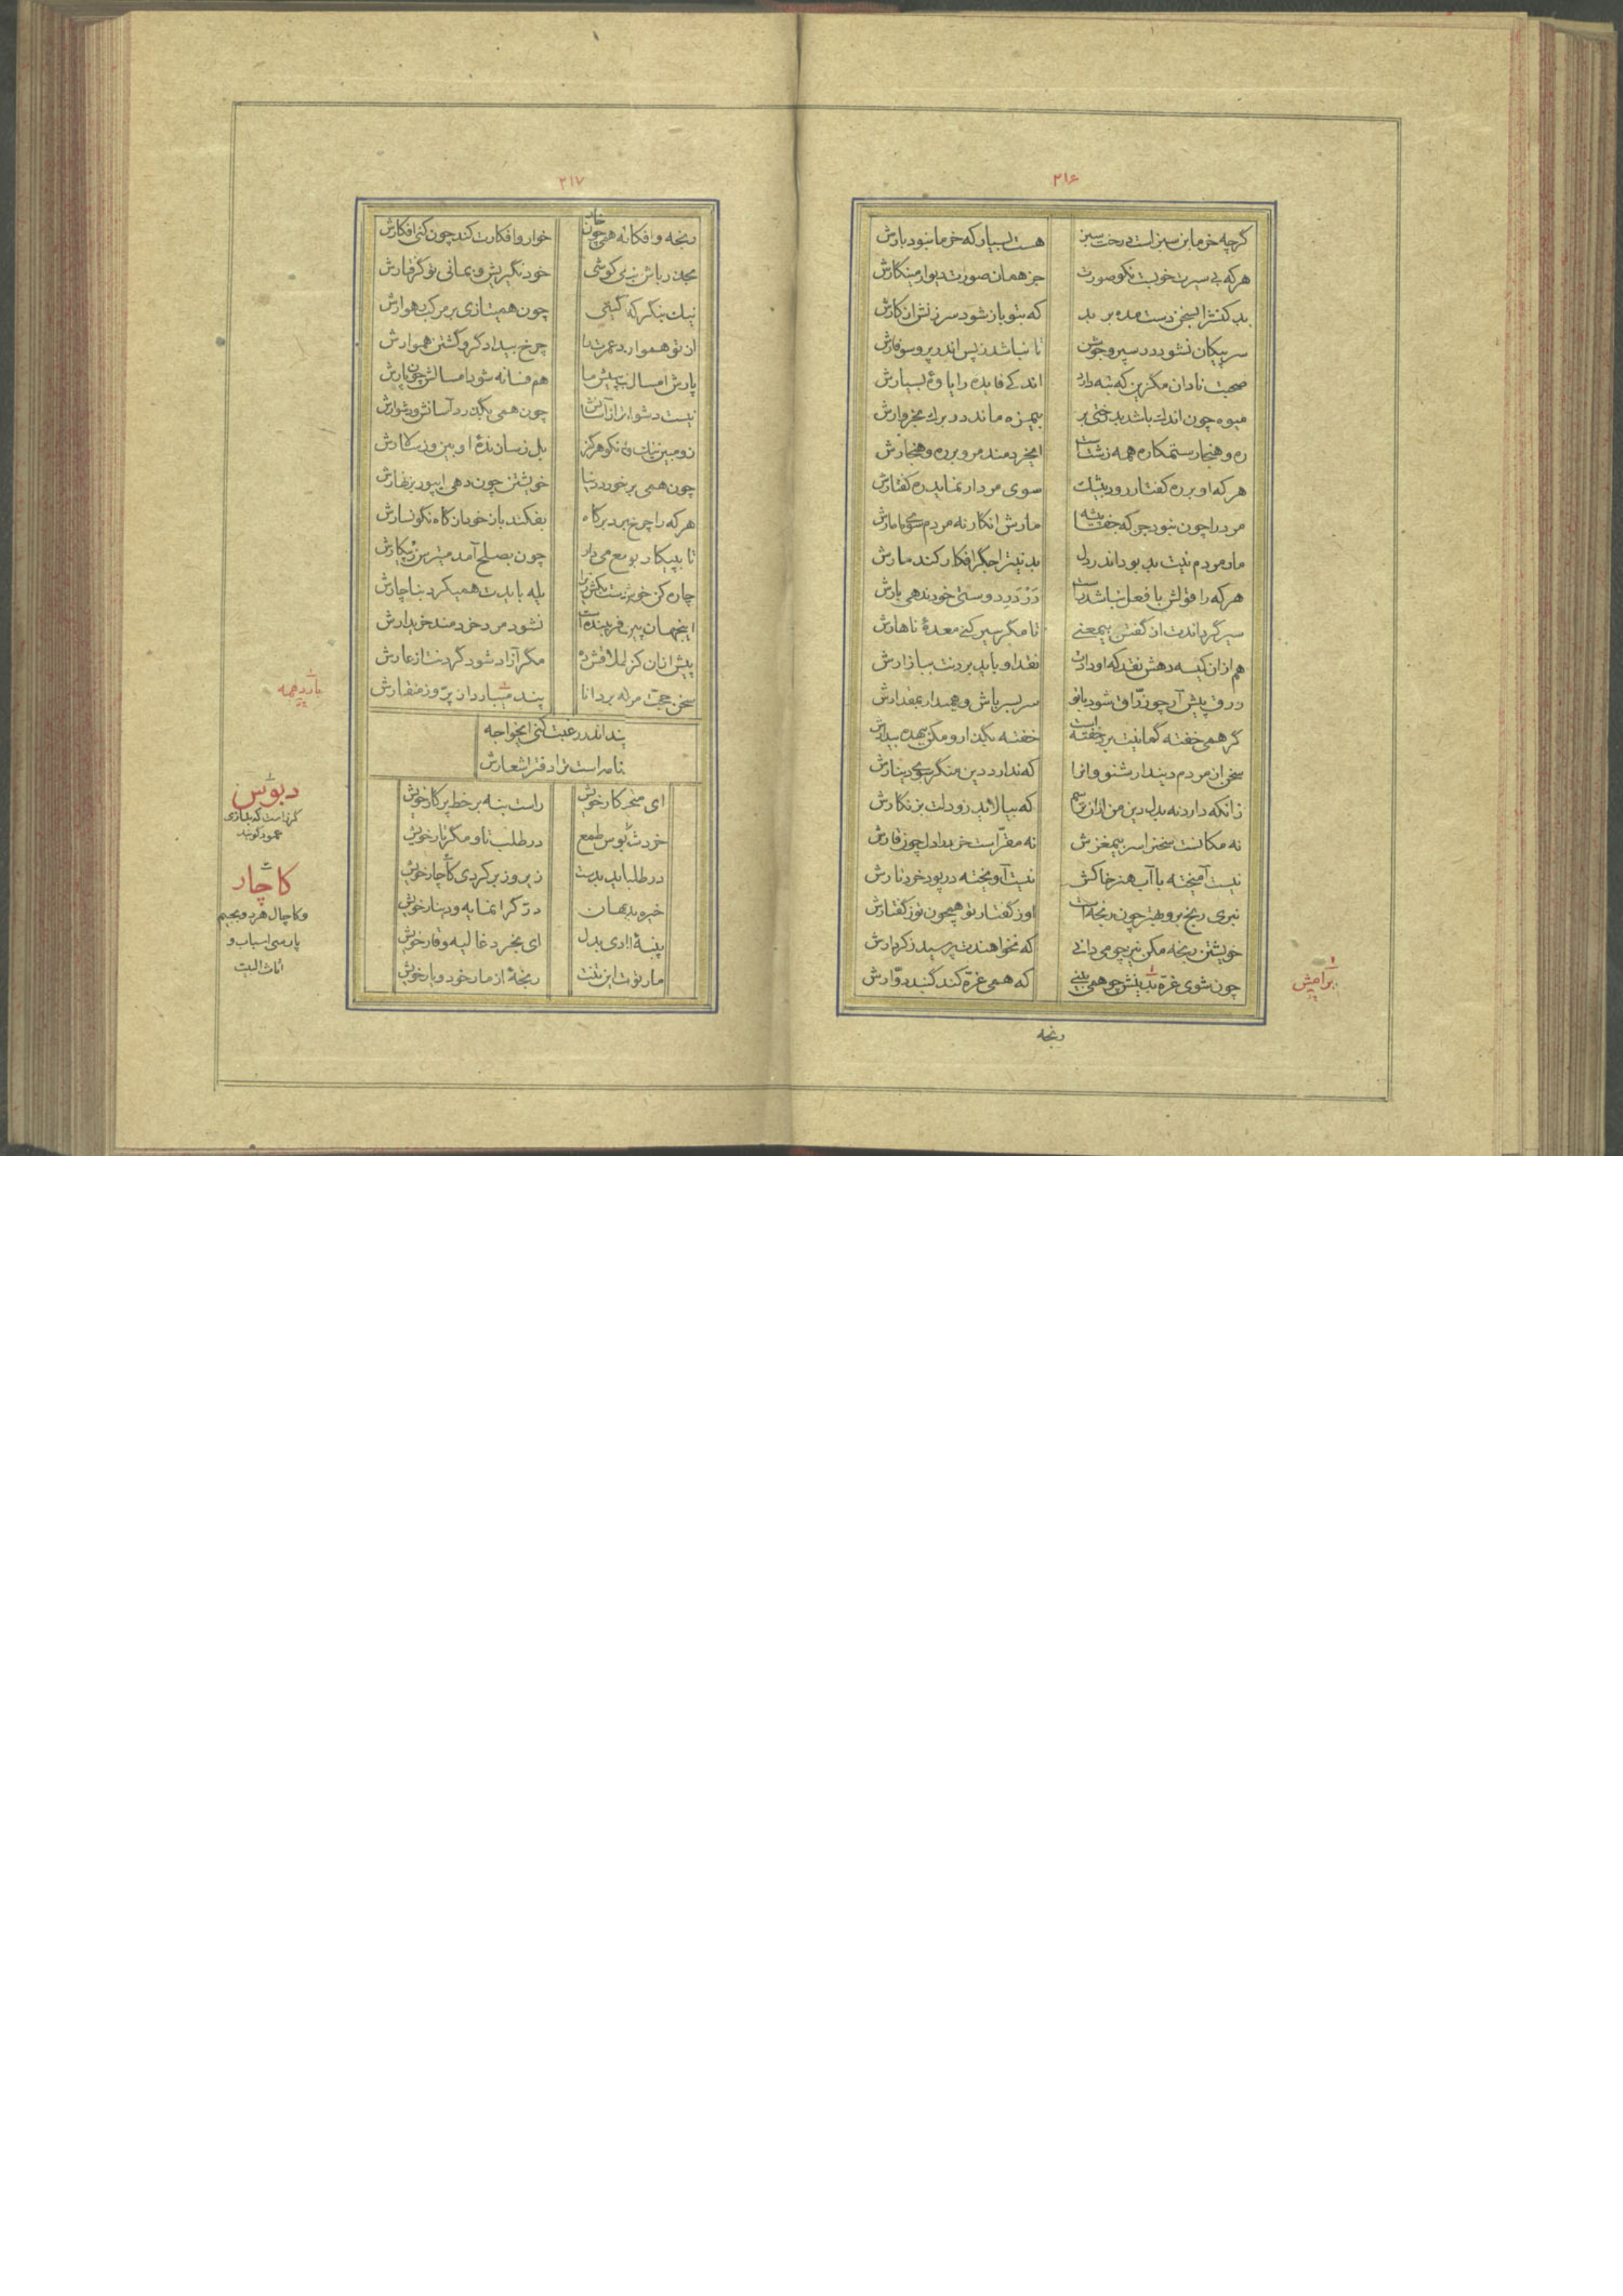 ۲۱۶
گرچه خرما بن سبز است درخت سبز هست بسیار که خرما نبود بارش
هرکه بی سیرت خوبست نکو صورت جز همان صورت دیوار مینگارش
بد کنش را بسخن دست مده بر بد که بتو باز شود سرزنش از کارش
سر پیکان نشود در سپر و جوشن تا نباشد ز پس اندر پر و سوفارش
صحبت نادان مگزین که تبه دارد اندکی فایده را یاوهٔ بسیارش
میوه چون اندک باشد بدرختی بر بیمزه ماند در برگ بخروارش
ره و هنجار ستمکاره همه زشتست ایخردمند مرو بر ره و هنجارش
هرکه او بر ره کفتار رود بیشک سوی مردار نماید ره کفتارش
مرد را چون نبود جز که جفا پیشه مارش انگار نه مردم سوی ما مارش
مار مردم نیت بد بود اندر دل بد نیت را جگر افکار کند مارش
هرکه را قولش با فعل نباشد راست در در دوستی خود ندهی بارش
سیر گرداندت از گفتن بیمعنی تا مگر سیر کنی معدهٔ ناهارش
هم از آن کیسه دهش نقد که او دادت نقد او باید بردنت ببازارش
زرق پیش آر چو زراق شود با تو سر بسر باش و همیدار بمقدارش
گر همی خفته گمانیت برد خفته است خفته بگذار و مکن بیهده بیدارش
سخن از مردم دیندار شنو وانرا که ندارد دین منگر سوی دینارش
زانکه دارد نه بدل دین من ازان ترسم که بیالاید زو دلت بزنگارش
نه مکانست سخنرا سر بیمغزش نه مقرّ است خرد را دل چون قارش
نیست آمیخته با آب هنر خاکش نیست آویخته در پود خرد تارش
نبری رنج برو بهتر چون رنجه است او ز گفتار تو همچون تو ز گفتارش
خویشتن رنجه مکن نیز چو می دانی که نخواهندت پرسید ز کردارش
چون شوی غرّه بدینش چو همی بینی که همی غرّه کند گنبد دوّارش
برامش
رنجه
۲۱۷
رنجه و افکانه همی چون خار خوار و افکارت کند چون کنی افکارش
بحذر باش نبی کوشی خود نگیریش و نمانی تو گرفتارش
نیک بنگر که گیتی چون همیتازی بر مرکب رهوارش
از تو هموار بدزد عمرت را چرخ بیدادگر و گشتن هموارش
پارش امسال پیش ما هم فسانه شود امسالش چون پارش
نیست دشوار تر از آسانش چون همی بگذرد آسانش و دشوارش
چون همی بر خورد دنیا خویشتن چون دهی ایپور بزنهارش
هرکه را چرخ برد بر گاه بفکند باز خود از گاه نگونسارش
تا بپیکار بود چون بصلح آمد میترس ز پیکارش
چاره کن خو زشت یله بایدت همیکرد بناچارش
اینجهان پیر فریبنده است نشود مرد خردمند خریدارش
پیش ازان مگر آزاد شود گردنت از عارش
سخن حجت مر له بر دانا پند میبارد از پرّ و ز منقارش
یازدهمه
پند اندر رغبت کنی ایخواجه
نامه راست ترا دفتر اشعارش
ای متحیر کار خویش راست بنه بر خط پرگار خویش
خرد شد بدبوس طمع در طلب تا و مگر تار خویش
در طلب زیر و زبر کردی کاچار خویش
خیره بدادی بجهان درّ گرانمایه و دینار خویش
پنبهٔ او را بدل ای بخرد غالیه و قار خویش
مار تو است این تنت رنجهٔ از مار خود و یار خویش
دبوس
گرز است که بتازی
عمود گویند
کاچار
و کاچال هر دو بجیم
پارسی اسباب و
اثاث البیت